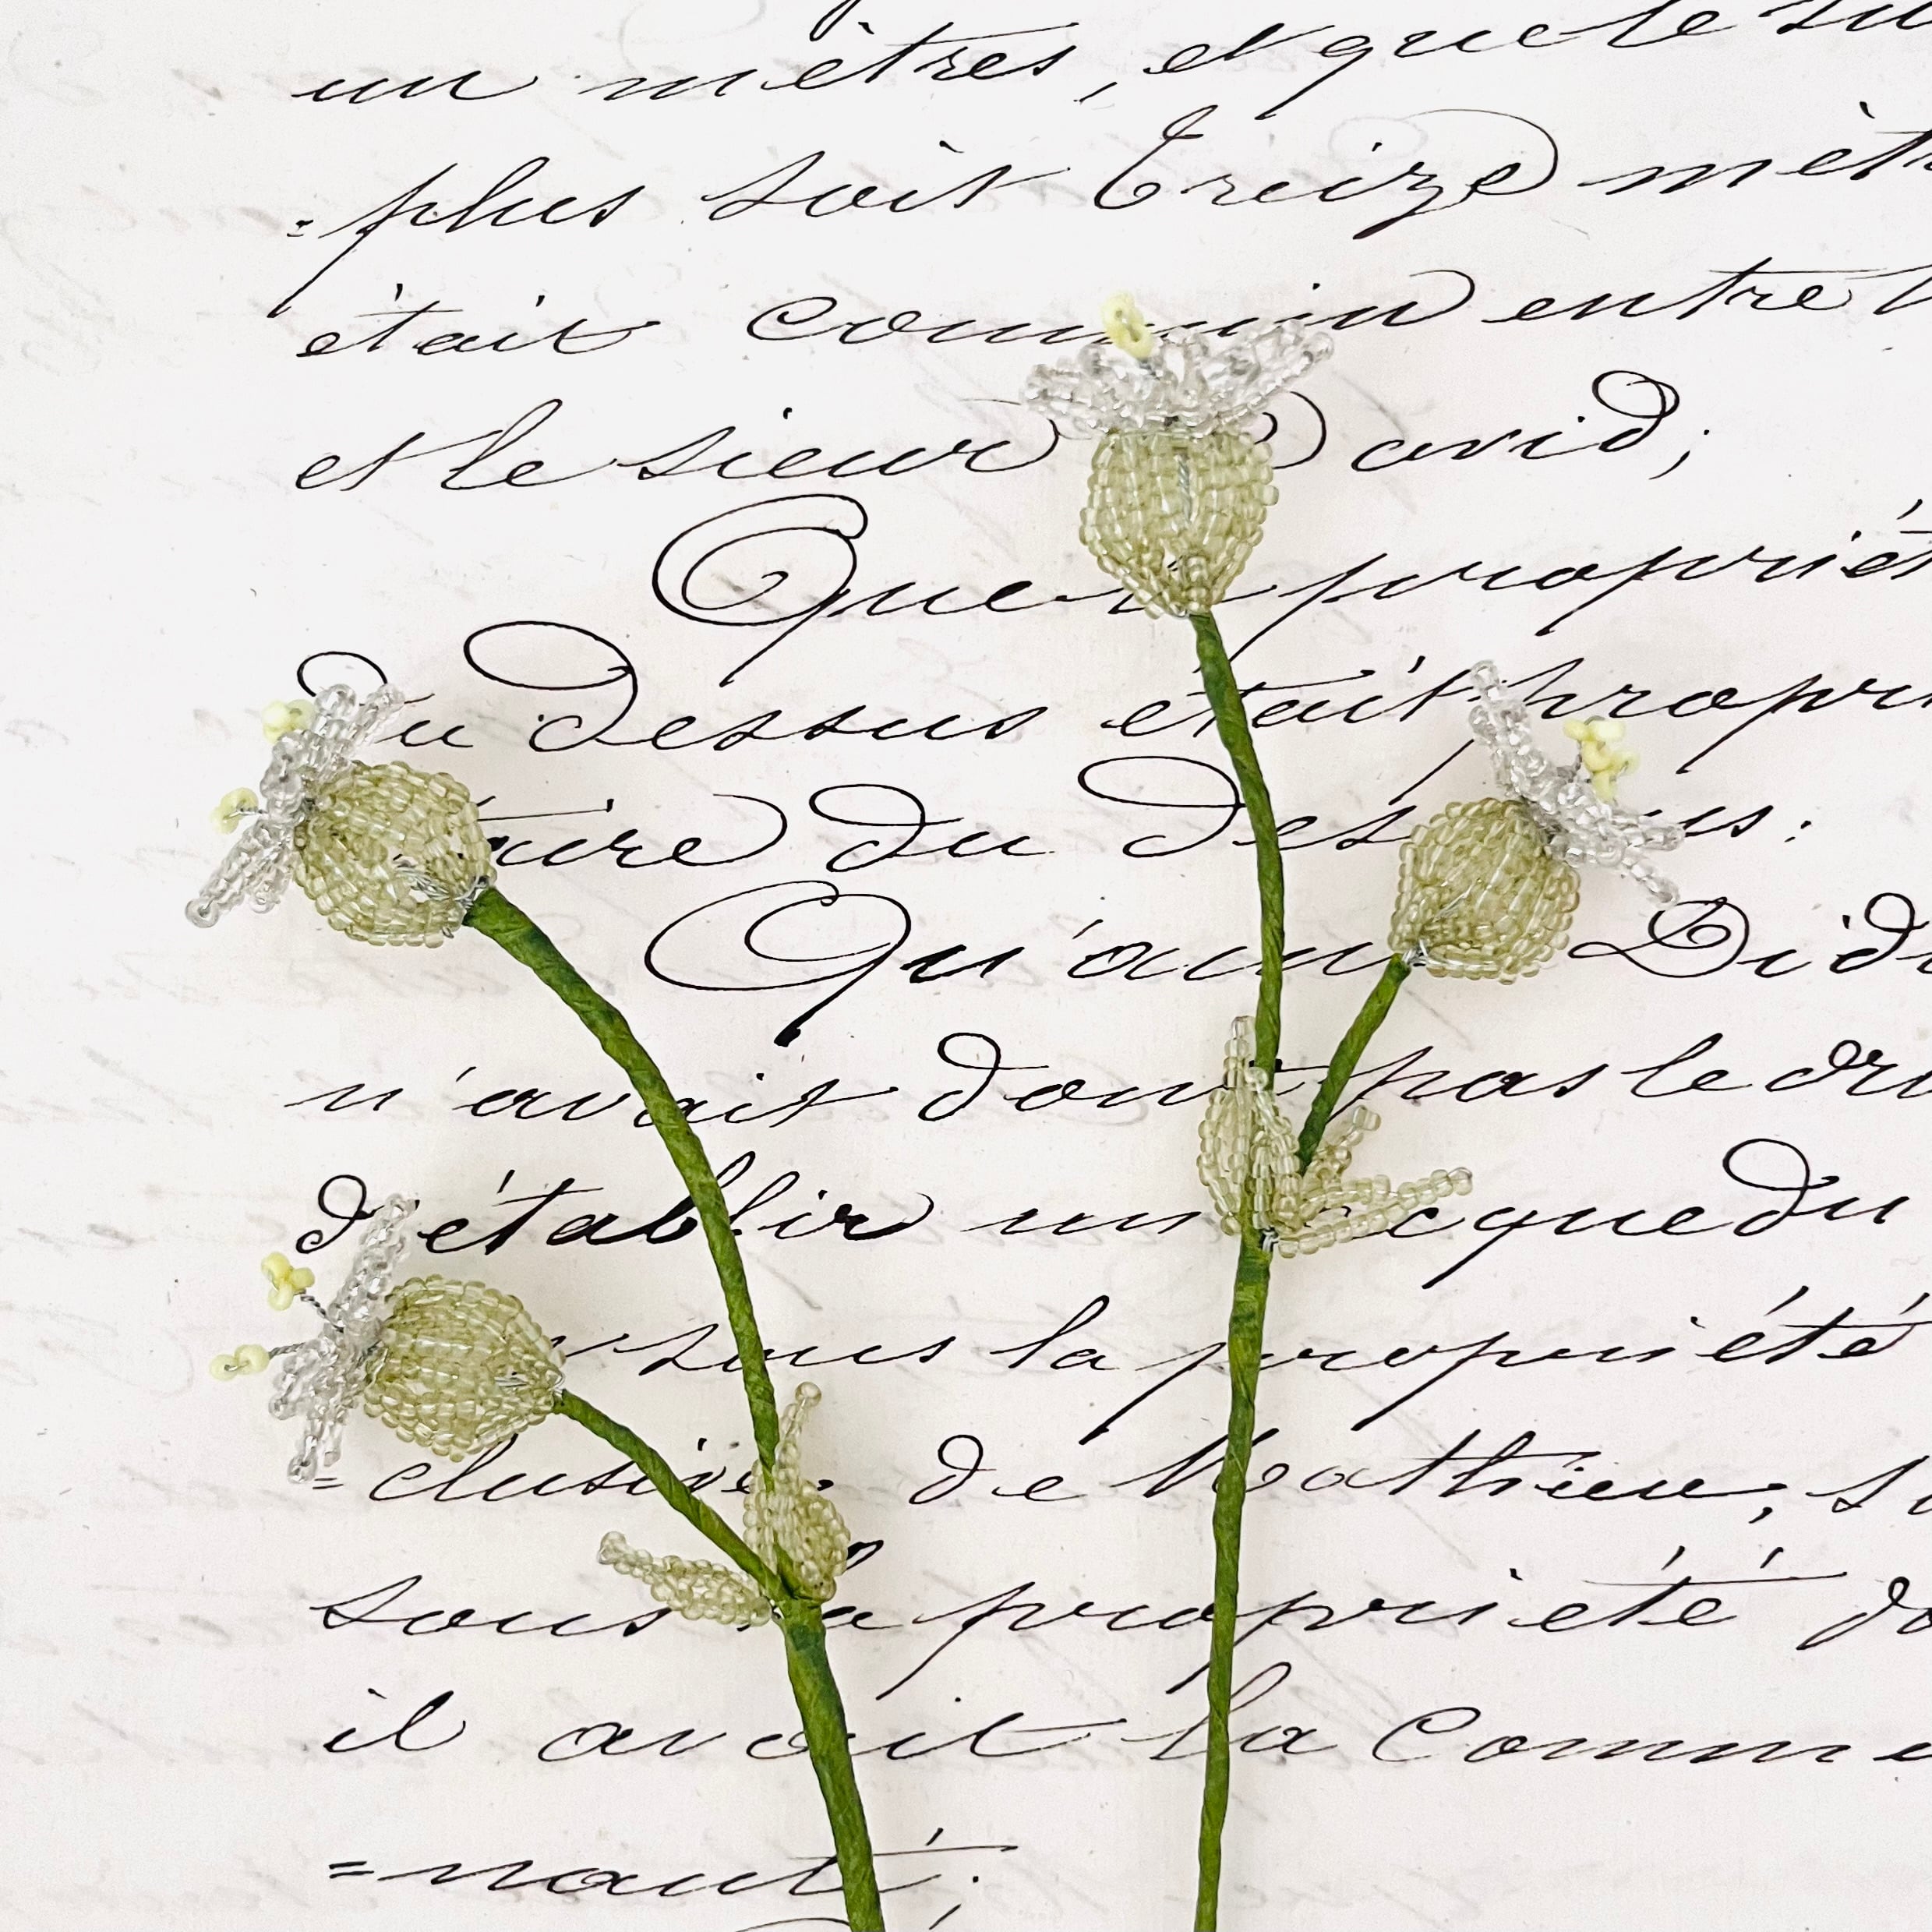 un mètres, et que le
=plus soit treize mèt
était commun entre
et le sieur David;
Que propriét
Du dessus était propri
taire du dessus:
Qu'ainsi Did
n'avait donc pas le dro
d'établir un acquedu
sous la propriété
=clusive de Mathieu; s
sous la propriété do
il avait la Commu
=nauté;